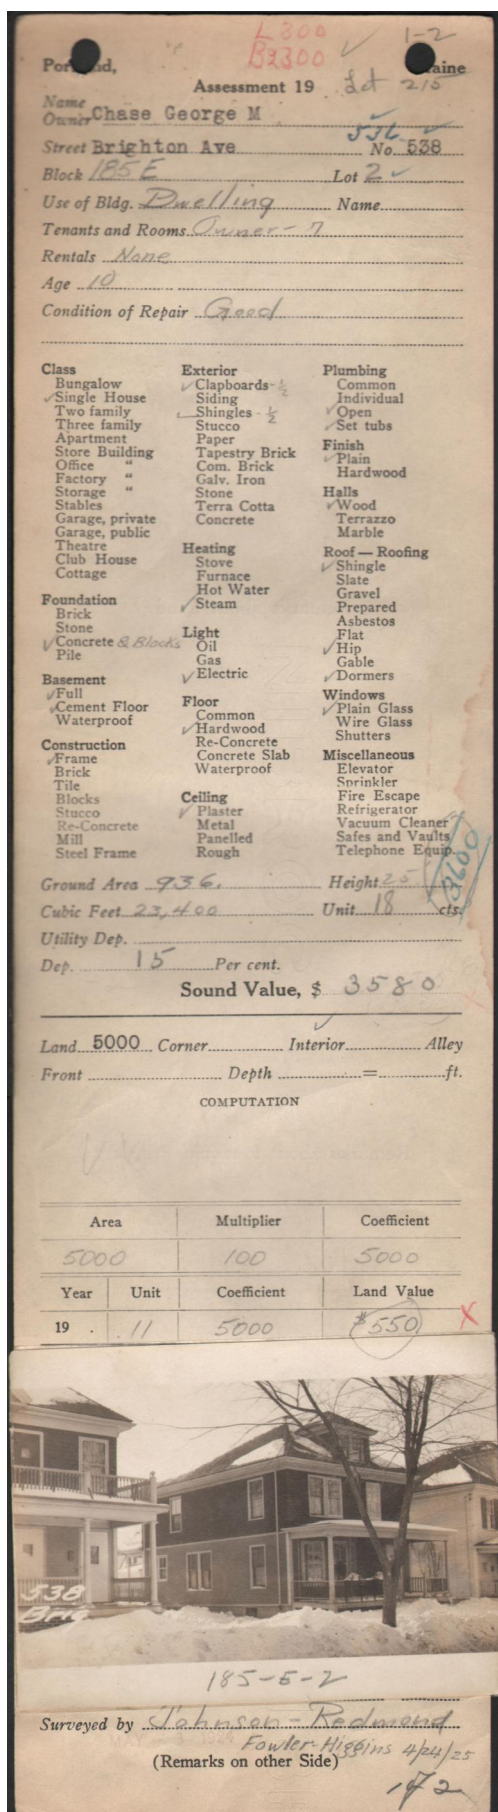 L300
B2300
1-2
Portland, Maine
Assessment 19 Lot 215
Name
Owner Chase George M
536
Street Brighton Ave No. 538
Block 185 E Lot 2
Use of Bldg. Dwelling Name
Tenants and Rooms Owner - 7
Rentals None
Age 10
Condition of Repair Good
Class
Bungalow
✓Single House
Two family
Three family
Apartment
Store Building
Office "
Factory "
Storage "
Stables
Garage, private
Garage, public
Theatre
Club House
Cottage
Foundation
Brick
Stone
✓Concrete & Blocks
Pile
Basement
✓Full
✓Cement Floor
Waterproof
Construction
✓Frame
Brick
Tile
Blocks
Stucco
Re-Concrete
Mill
Steel Frame
Exterior
✓Clapboards - ½
Siding
✓Shingles - ½
Stucco
Paper
Tapestry Brick
Com. Brick
Galv. Iron
Stone
Terra Cotta
Concrete
Heating
Stove
Furnace
Hot Water
✓Steam
Light
Oil
Gas
✓Electric
Floor
Common
✓Hardwood
Re-Concrete
Concrete Slab
Waterproof
Ceiling
✓Plaster
Metal
Panelled
Rough
Plumbing
Common
Individual
✓Open
✓Set tubs
Finish
✓Plain
Hardwood
Halls
✓Wood
Terrazzo
Marble
Roof — Roofing
✓Shingle
Slate
Gravel
Prepared
Asbestos
✓Flat
✓Hip
Gable
✓Dormers
Windows
✓Plain Glass
Wire Glass
Shutters
Miscellaneous
Elevator
Sprinkler
Fire Escape
Refrigerator
Vacuum Cleaner
Safes and Vaults
Telephone Equip.
3600
Ground Area 936. Height 25
Cubic Feet 23,400 Unit 18 cts.
Utility Dep.
Dep. 15 Per cent.
Sound Value, $ 3580
Land 5000 Corner Interior ✓ Alley
Front Depth = ft.
COMPUTATION
Area Multiplier Coefficient
5000 100 5000
Year Unit Coefficient Land Value
19 . .11 5000 $550
538
Brig
185-E-2
Surveyed by Johnson - Redmond
Fowler-Higgins 4/24/25
(Remarks on other Side)